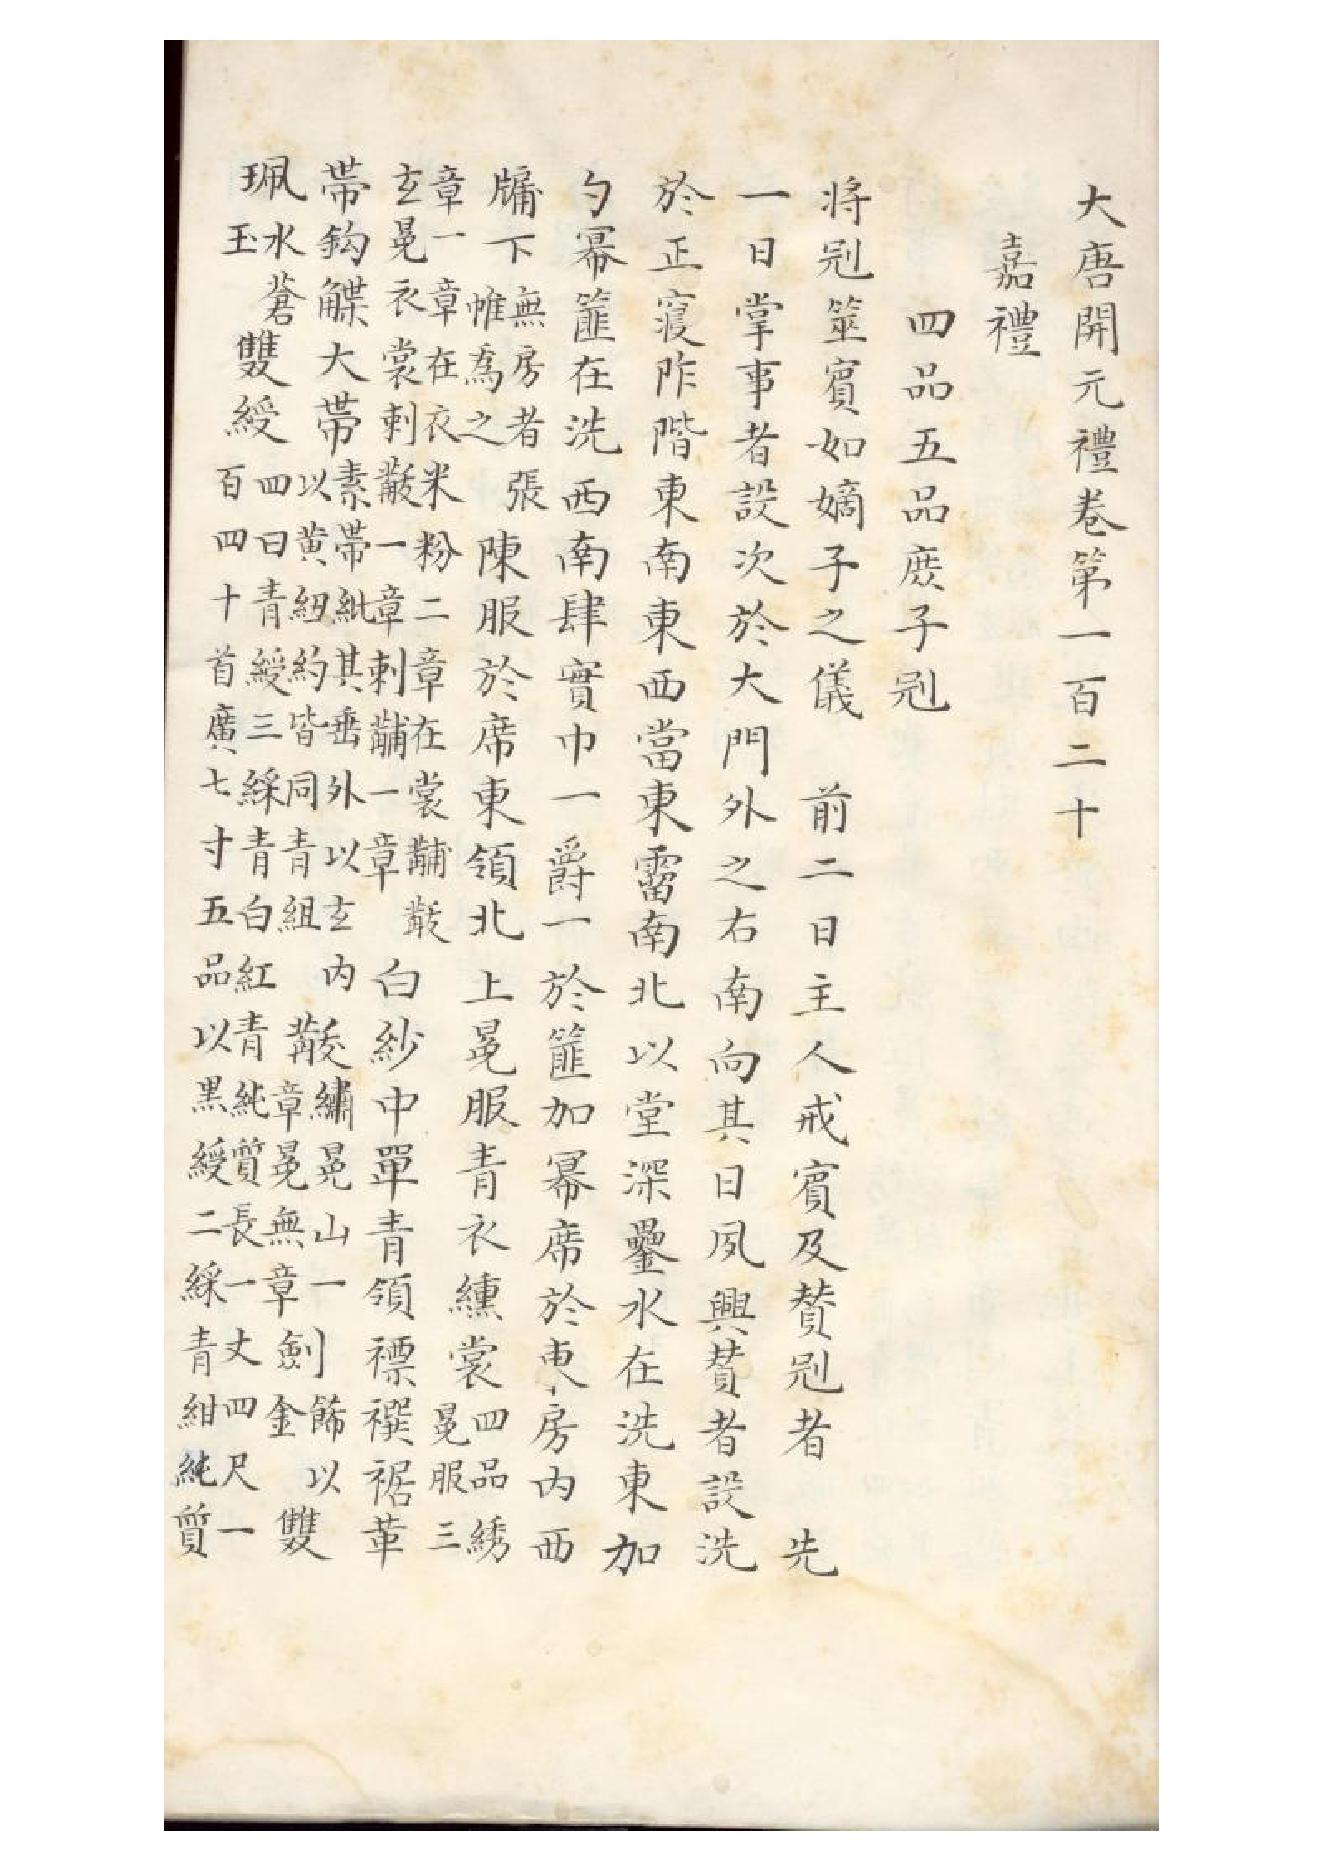 大唐開元禮卷第一百二十
嘉禮
四品五品庶子冠
將冠筮賓如嫡子之儀　前二日主人戒賓及贊冠者　先
一日掌事者設次於大門外之右南向其日夙興贊者設洗
於正寢阼階東南東西當東霤南北以堂深罍水在洗東加
勺冪篚在洗西南肆實巾一爵一於篚加冪席於東房內西
牖下無房者張帷為之陳服於席東領北上冕服青衣纁裳四品綉冕服三
章一章在衣米粉二章在裳黼黻玄冕衣裳刺黻一章刺黼一章白紗中單青領褾襈裾革
帶鈎䚢大帶素帶紕其垂外以玄內以黃紐約皆同青組黻繡冕山一章冕無章劍飾以金雙
珮水蒼玉雙綬四曰青綬三綵青白紅青純質長一丈四尺一百四十首廣七寸五品以黑綬二綵青紺純質